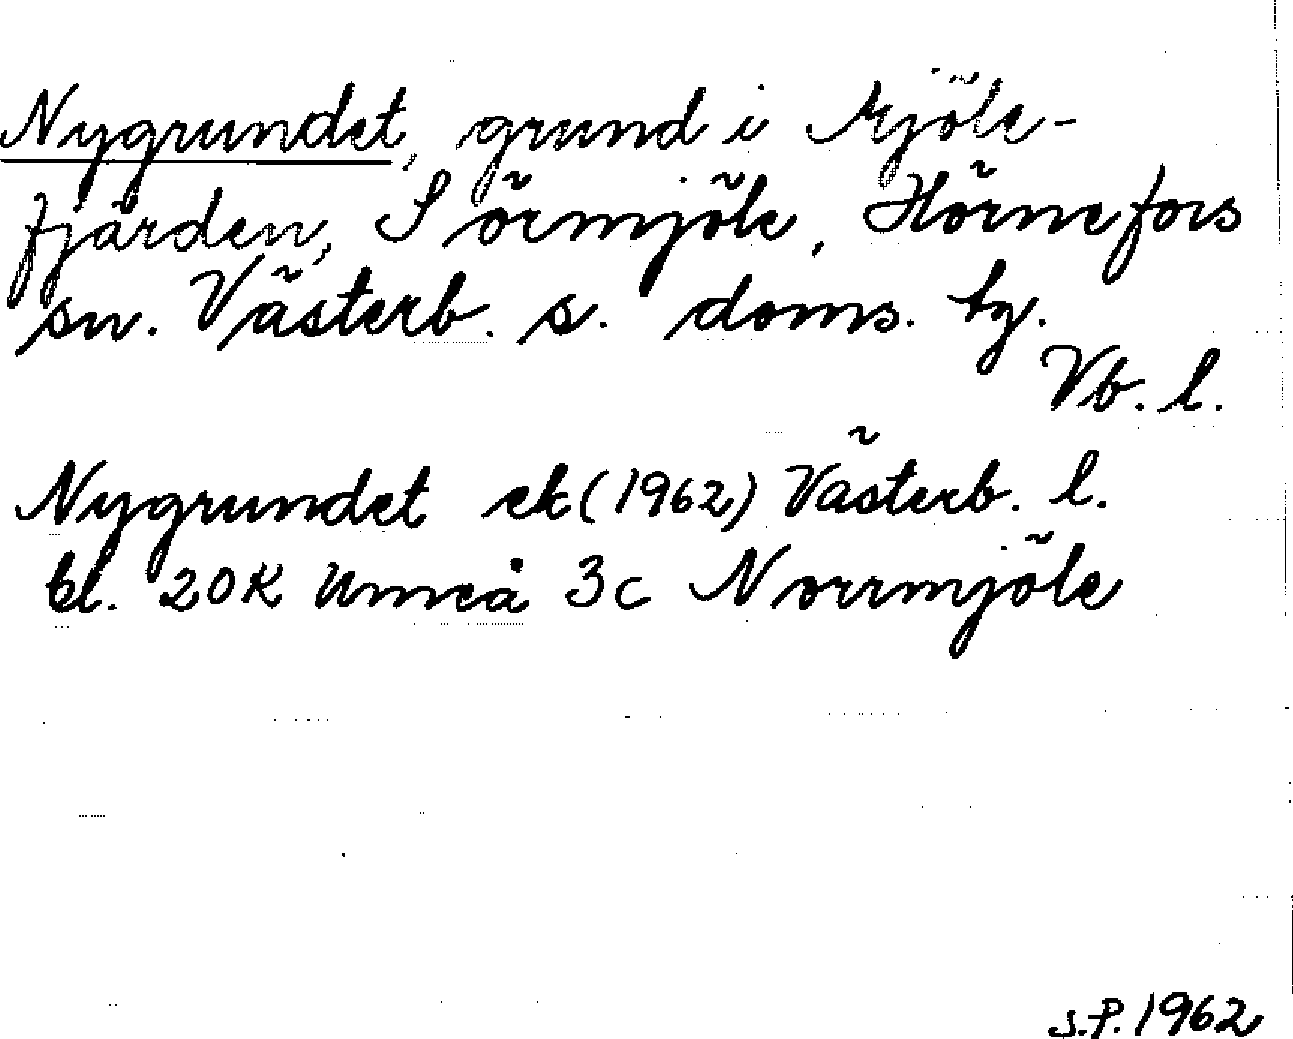 Nygrundet, grund i Mjöle-
fjärden, Sörmjöle, Hörnefors
sn. Västerb. s. doms. tg.
Vb. l.
Nygrundet ek (1962) Västerb. l.
bl. 20K Umeå 3c Norrmjöle
S.P. 1962